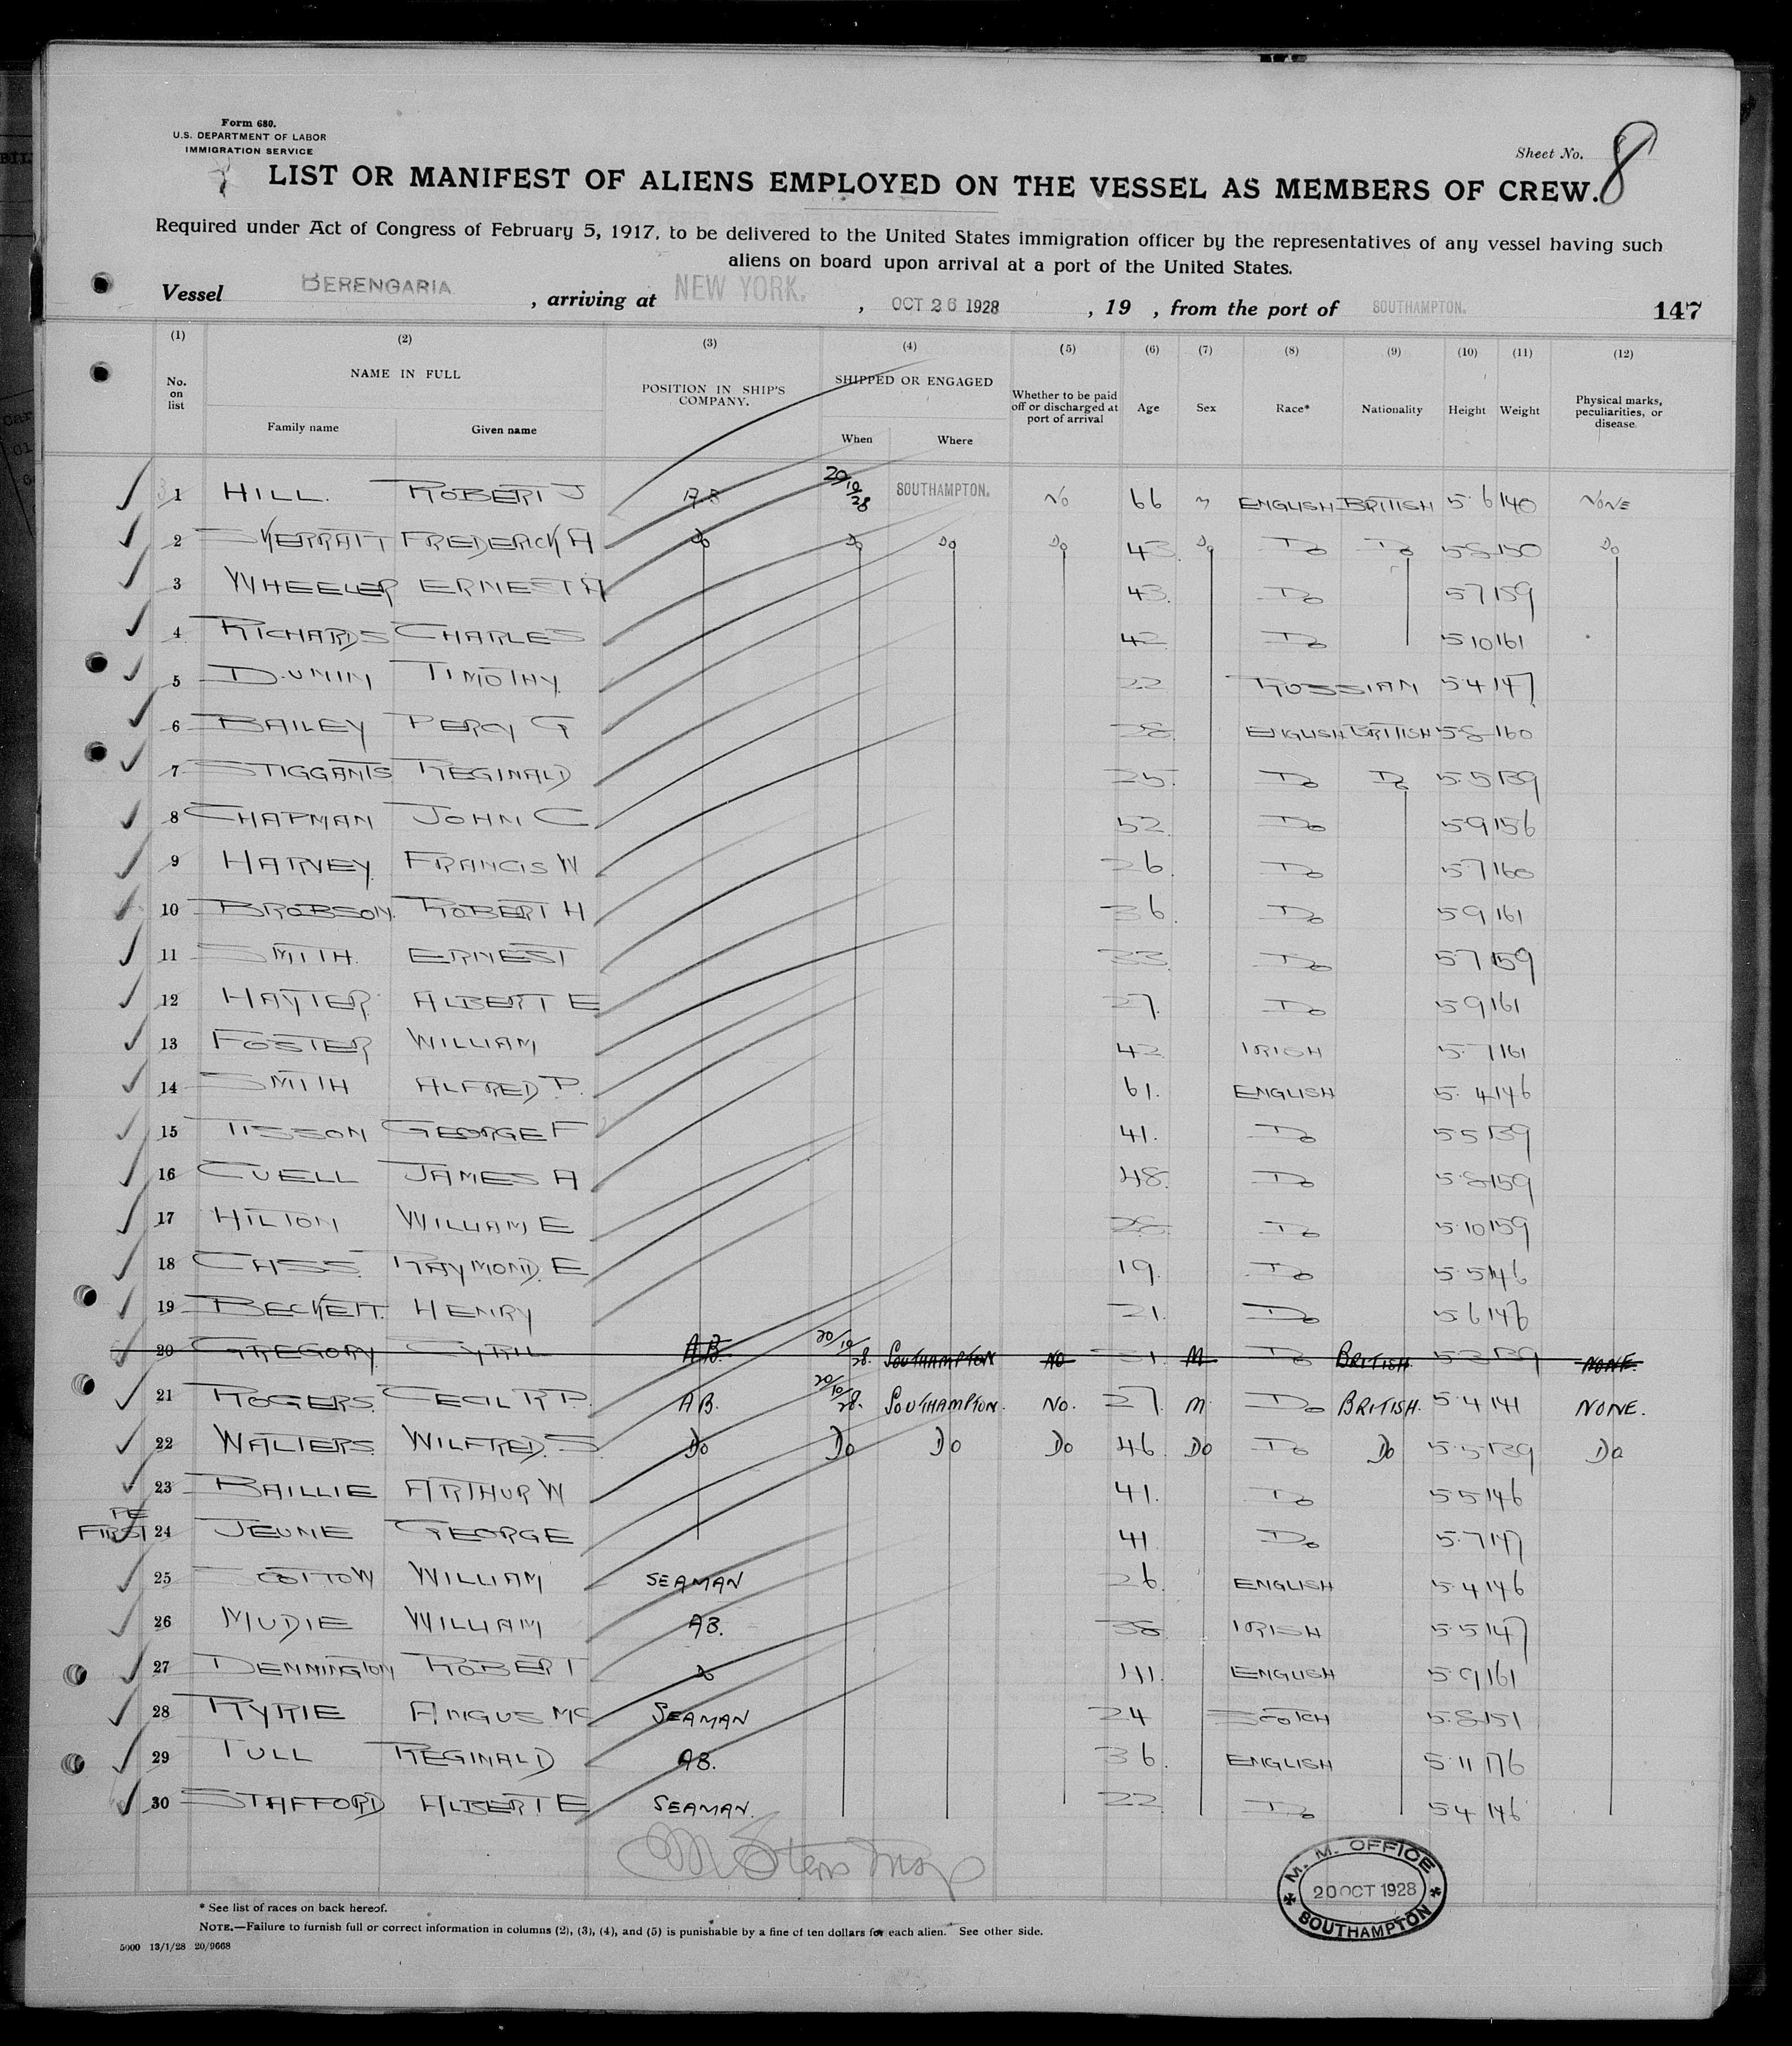 Form 680.
U.S. DEPARTMENT OF LABOR
IMMIGRATION SERVICE
Sheet No. 8
LIST OR MANIFEST OF ALIENS EMPLOYED ON THE VESSEL AS MEMBERS OF CREW.
Required under Act of Congress of February 5, 1917, to be delivered to the United States immigration officer by the representatives of any vessel having such
aliens on board upon arrival at a port of the United States.
Vessel BERENGARIA , arriving at NEW YORK. , OCT 26 1928 , 19 , from the port of SOUTHAMPTON. 147
(1) (2) (3) (4) (5) (6) (7) (8) (9) (10) (11) (12)
No. on list NAME IN FULL Family name Given name POSITION IN SHIP'S COMPANY. SHIPPED OR ENGAGED When Where Whether to be paid off or discharged at port of arrival Age Sex Race* Nationality Height Weight Physical marks, peculiarities, or disease.
1 HILL. ROBERT J A.B 20/10/28 SOUTHAMPTON. NO 66 M ENGLISH BRITISH 5.6 140 NONE
2 SKERRATT FREDERICK A Do Do Do Do 43 Do Do Do 5 8 150 Do
3 WHEELER ERNEST A 43. Do 5 7 159
4 RICHARDS CHARLES 42 Do 5 10 161
5 TIMOTHY. 22 RUSSIAN 5.4 147
6 BAILEY PERCY G 38. ENGLISH BRITISH 5.8 160
7 STIGGANTS REGINALD 25. Do Do 5.5 139
8 CHAPMAN JOHN C 52. Do 5 9 156
9 HARVEY. FRANCIS W 26. Do 5.7 160
10 BROBSON. ROBERT H 36. Do 5 9 161
11 SMITH. ERNEST 33. Do 5 7 159
12 HAYTER. ALBERT E 27. Do 5 9 161
13 FOSTER WILLIAM 42 IRISH 5.7 161
14 SMITH ALFRED P. 61. ENGLISH 5.4 146
15 TISSON GEORGE F 41. Do 5 5 139
16 CUELL JAMES A 48. Do 5.8 159
17 HILTON WILLIAM E 28. Do 5.10 159
18 CASS. RAYMOND. E 19. Do 5.5 146
19 BECKETT. HENRY 21. Do 5.6 146
20 GREGORY. CYRIL AB. 20/10/28. SOUTHAMPTON NO 21. M Do BRITISH. 5 3 139 NONE.
21 ROGERS. CECIL R P. AB. 20/10/28. SOUTHAMPTON. NO. 27. M Do BRITISH. 5.4 141 NONE.
22 WALTERS. WILFRED. S. Do Do Do Do 46. Do Do Do 5.5 139 Do
23 BAILLIE ARTHUR W 41. Do 5 5 146
FIRST 24 JEUNE GEORGE 41 Do 5.7 147
25 SCOTTOW WILLIAM SEAMAN 26. ENGLISH 5.4 146
26 MUDIE WILLIAM AB. 38. IRISH 5.5 147
27 DENNINGTON ROBERT Do 41. ENGLISH 5.9 161
28 RYRIE ANGUS MC SEAMAN 24 SCOTCH 5.8 151
29 TULL REGINALD AB. 36. ENGLISH 5.11 176
30 STAFFORD ALBERT E SEAMAN. 22 Do 5 4 146
M. M. OFFICE
20 OCT 1928
SOUTHAMPTON
* See list of races on back hereof.
NOTE.—Failure to furnish full or correct information in columns (2), (3), (4), and (5) is punishable by a fine of ten dollars for each alien. See other side.
5000 13/1/28 20/9668